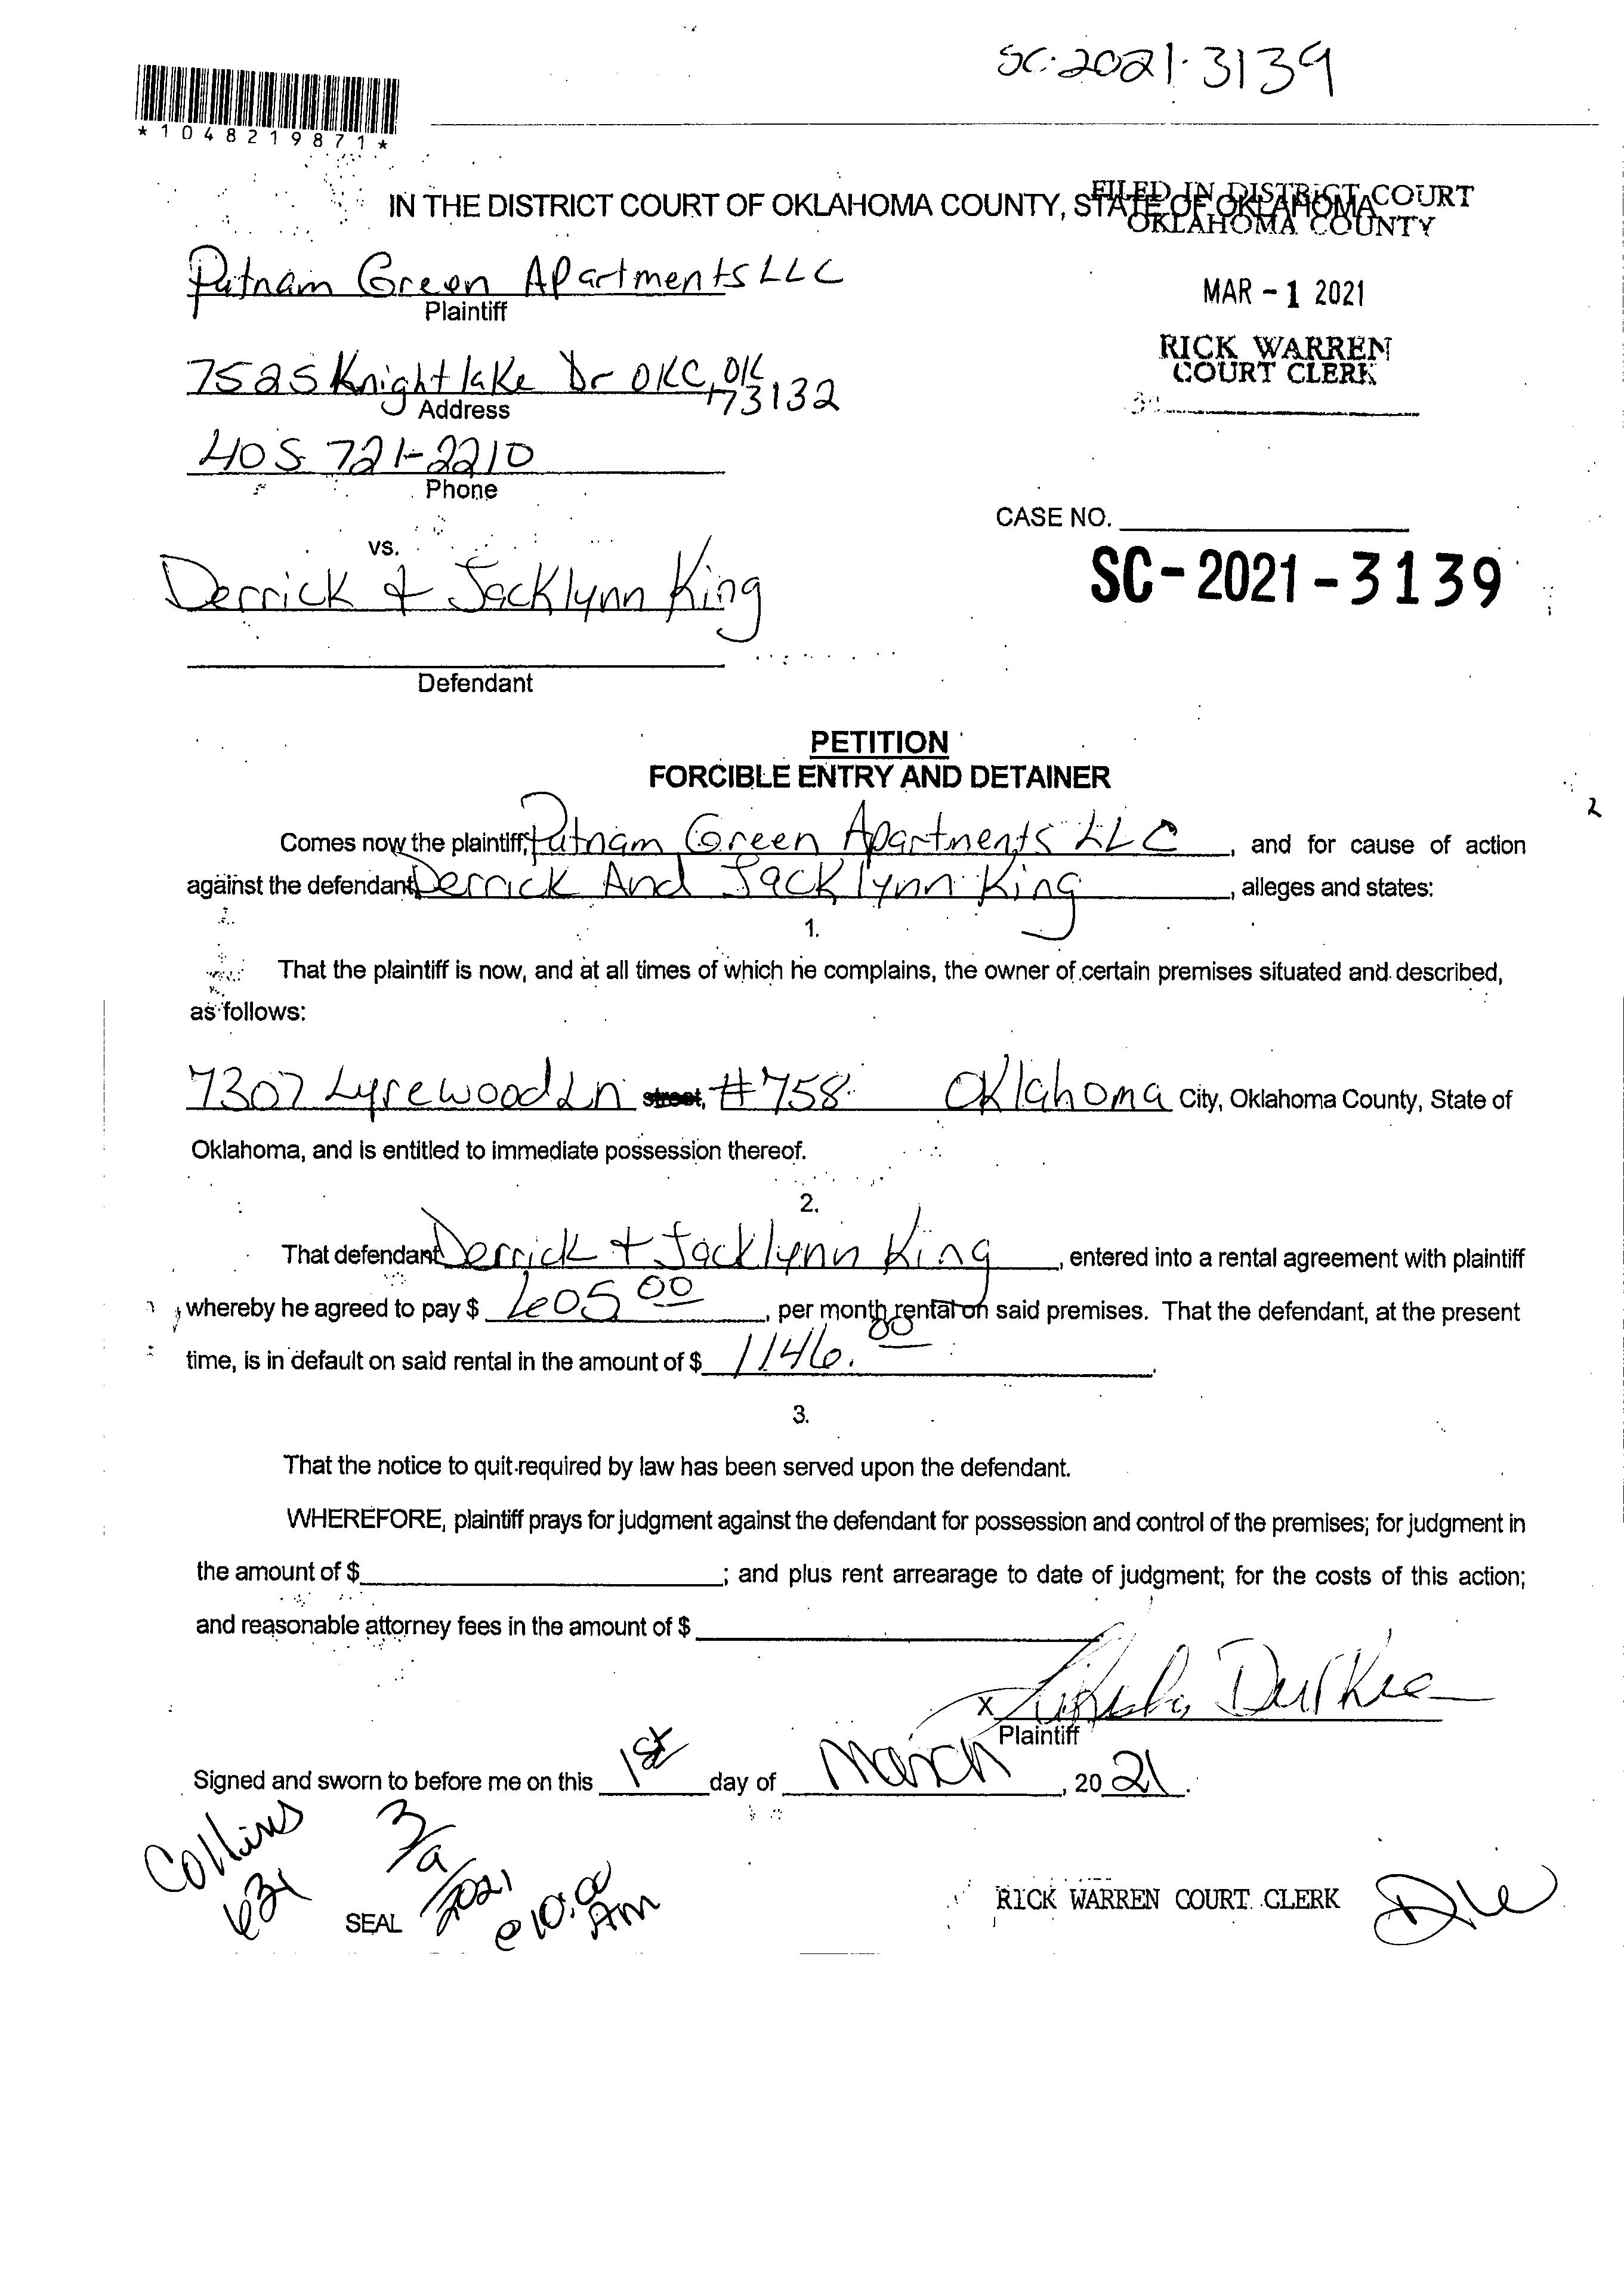 SC-2021-3139
*1048219871*
IN THE DISTRICT COURT OF OKLAHOMA COUNTY, STATE OF OKLAHOMA
FILED IN DISTRICT COURT
OKLAHOMA COUNTY
Putnam Green Apartments LLC
Plaintiff
MAR - 1 2021
RICK WARREN
COURT CLERK
7525 Knight lake Dr OKC, OK
73132
Address
405 721-2210
Phone
CASE NO.
vs.
SC-2021-3139
Derrick & Jacklynn King
Defendant
PETITION
FORCIBLE ENTRY AND DETAINER
Comes now the plaintiff, Putnam Green Apartments LLC, and for cause of action
against the defendant Derrick And Jacklynn King, alleges and states:
1.
That the plaintiff is now, and at all times of which he complains, the owner of certain premises situated and described,
as follows:
7307 Lyrewood Ln street, #758 Oklahoma City, Oklahoma County, State of
Oklahoma, and is entitled to immediate possession thereof.
2.
That defendant Derrick + Jacklynn King, entered into a rental agreement with plaintiff
whereby he agreed to pay $ 605 00, per month rental on said premises. That the defendant, at the present
time, is in default on said rental in the amount of $ 1146. 00.
3.
That the notice to quit required by law has been served upon the defendant.
WHEREFORE, plaintiff prays for judgment against the defendant for possession and control of the premises; for judgment in
the amount of $ ; and plus rent arrearage to date of judgment; for the costs of this action;
and reasonable attorney fees in the amount of $
X Durkee
Plaintiff
Signed and sworn to before me on this 1st day of March, 2021.
Collins
631
3/9/2021
@ 10:00 Am
SEAL
RICK WARREN COURT CLERK